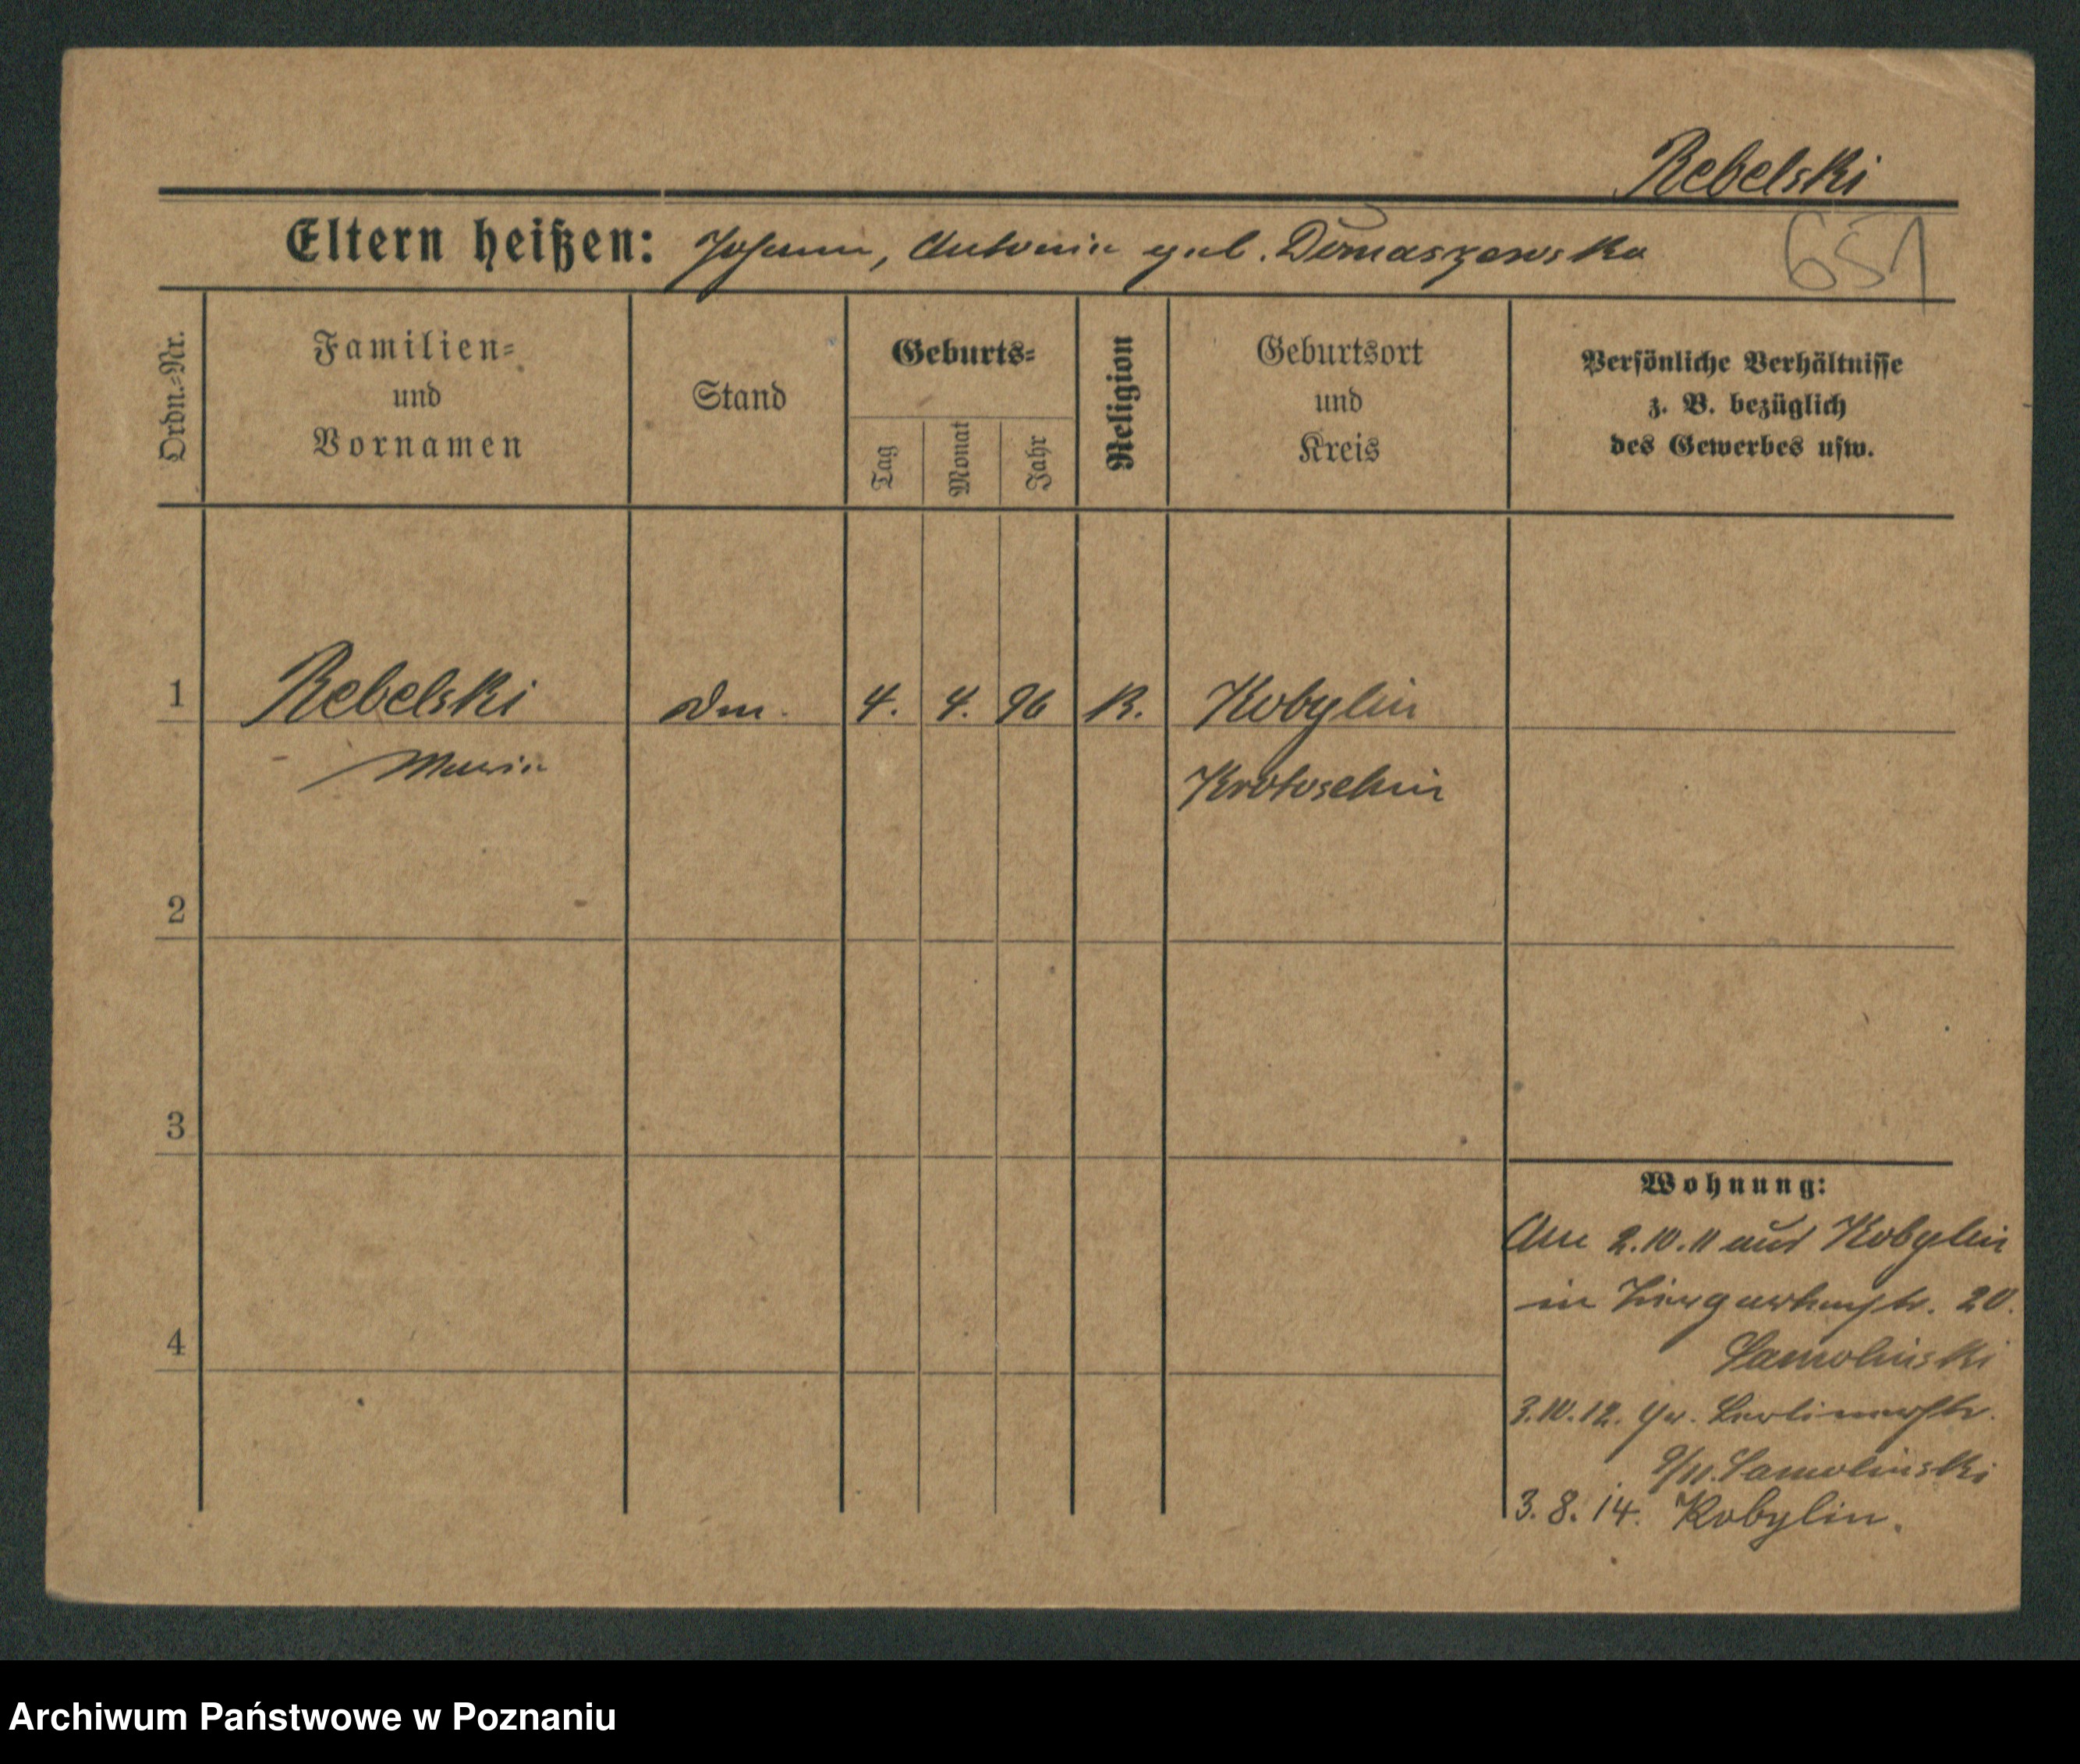 Rebelski
Eltern heißen: Johann, Antonie geb. Domaszewska
651
Ordn.-Nr.
Familien-
und
Vornamen
Stand
Geburts-
Tag
Monat
Jahr
Religion
Geburtsort
und
Kreis
Persönliche Verhältnisse
z. B. bezüglich
des Gewerbes usw.
1 Rebelski 4. 4. 96 K. Kobylin
Maria Krotoschin
2
3
4
Wohnung:
2.10.11 aus Kobylin
in 20.
Samolinski
3.10.12. Gr. Berlinerstr.
Samolinski
3.8.14. Kobylin.
Archiwum Państwowe w Poznaniu